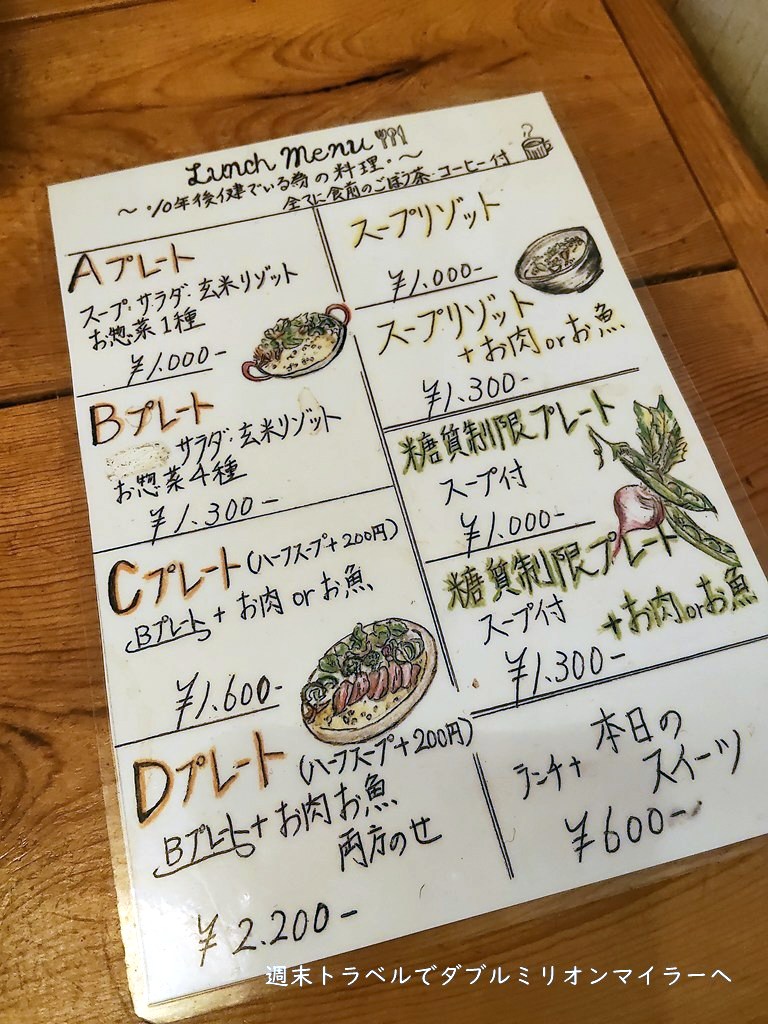 Lunch Menu
～・10年後健でいる為の料理・～
全てに食前のごぼう茶・コーヒー付
Aプレート
スープ・サラダ・玄米リゾット
お惣菜1種
¥1.000-
Bプレート
サラダ・玄米リゾット
お惣菜4種
¥1.300-
Cプレート(ハーフスープ+200円)
Bプレート+お肉orお魚
¥1.600-
Dプレート(ハーフスープ+200円)
Bプレート+お肉お魚
両方のせ
¥2.200-
スープリゾット
¥1.000-
スープリゾット
+お肉orお魚
¥1.300-
糖質制限プレート
スープ付
¥1.000-
糖質制限プレート
スープ付 +お肉orお魚
¥1.300-
本日の
ランチ+ スイーツ
¥600-
週末トラベルでダブルミリオンマイラーへ